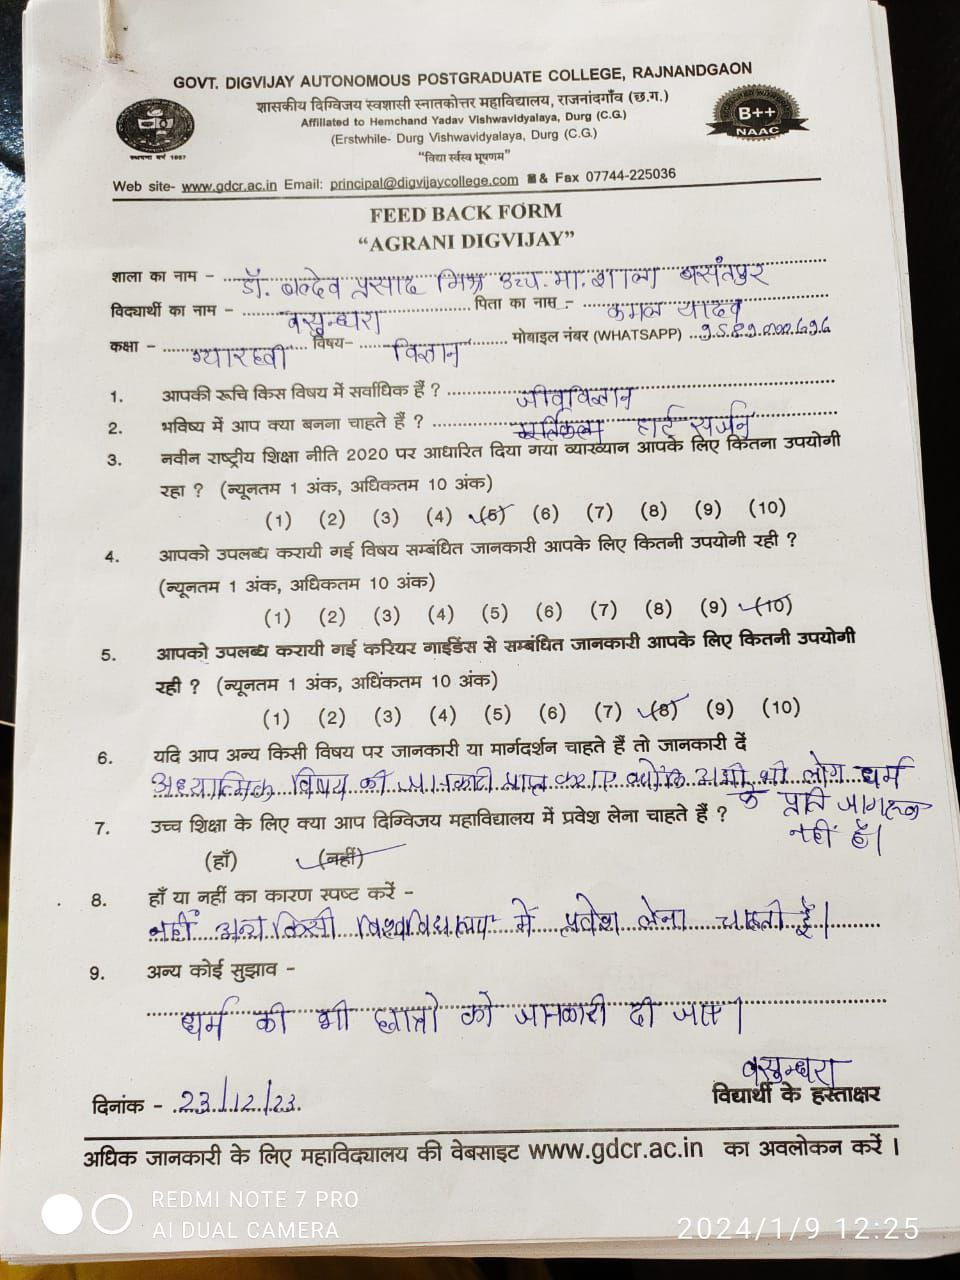 GOVT. DIGVIJAY AUTONOMOUS POSTGRADUATE COLLEGE, RAJNANDGAON
शासकीय दिग्विजय स्वशासी स्नातकोत्तर महाविद्यालय, राजनांदगाँव (छ.ग.)
Affiliated to Hemchand Yadav Vishwavidyalaya, Durg (C.G.)
(Erstwhile- Durg Vishwavidyalaya, Durg (C.G.)
"विद्या र्स्वस्व भूषणम"
स्थापना वर्ष 1957
B++
NAAC
Web site- www.gdcr.ac.in Email: principal@digvijaycollege.com & Fax 07744-225036
FEED BACK FORM
"AGRANI DIGVIJAY"
शाला का नाम - डॉ. बल्देव प्रसाद मिश्र उच्च. मा. शाला बसंतपुर
विद्यार्थी का नाम - वसुन्धरा पिता का नाम - कमल यादव
कक्षा - ग्यारहवी विषय- विज्ञान मोबाइल नंबर (WHATSAPP)
1. आपकी रूचि किस विषय में सर्वाधिक हैं ? जीवविज्ञान
2. भविष्य में आप क्या बनना चाहते हैं ? हार्ट सर्जन
3. नवीन राष्ट्रीय शिक्षा नीति 2020 पर आधारित दिया गया व्याख्यान आपके लिए कितना उपयोगी
रहा ? (न्यूनतम 1 अंक, अधिकतम 10 अंक)
(1) (2) (3) (4) (5) (6) (7) (8) (9) (10)
4. आपको उपलब्ध करायी गई विषय सम्बंधित जानकारी आपके लिए कितनी उपयोगी रही ?
(न्यूनतम 1 अंक, अधिकतम 10 अंक)
(1) (2) (3) (4) (5) (6) (7) (8) (9) (10)
5. आपको उपलब्ध करायी गई करियर गाईडेंस से सम्बंधित जानकारी आपके लिए कितनी उपयोगी
रही ? (न्यूनतम 1 अंक, अधिकतम 10 अंक)
(1) (2) (3) (4) (5) (6) (7) (8) (9) (10)
6. यदि आप अन्य किसी विषय पर जानकारी या मार्गदर्शन चाहते हैं तो जानकारी दें
अध्यात्मिक विषय की जानकारी प्राप्त कराए क्योंकि अभी भी लोग धर्म
के प्रति जागरूक
नहीं हैं।
7. उच्च शिक्षा के लिए क्या आप दिग्विजय महाविद्यालय में प्रवेश लेना चाहते हैं ?
(हाँ) (नहीं)
8. हाँ या नहीं का कारण स्पष्ट करें -
नहीं अन्य किसी विश्वविद्यालय में प्रवेश लेना चाहती हैं।
9. अन्य कोई सुझाव -
धर्म की भी छात्रो को जानकारी दी जाए।
वसुन्धरा
दिनांक - 23/12/23. विद्यार्थी के हस्ताक्षर
अधिक जानकारी के लिए महाविद्यालय की वेबसाइट www.gdcr.ac.in का अवलोकन करें ।
REDMI NOTE 7 PRO
AI DUAL CAMERA
2024/1/9 12:25